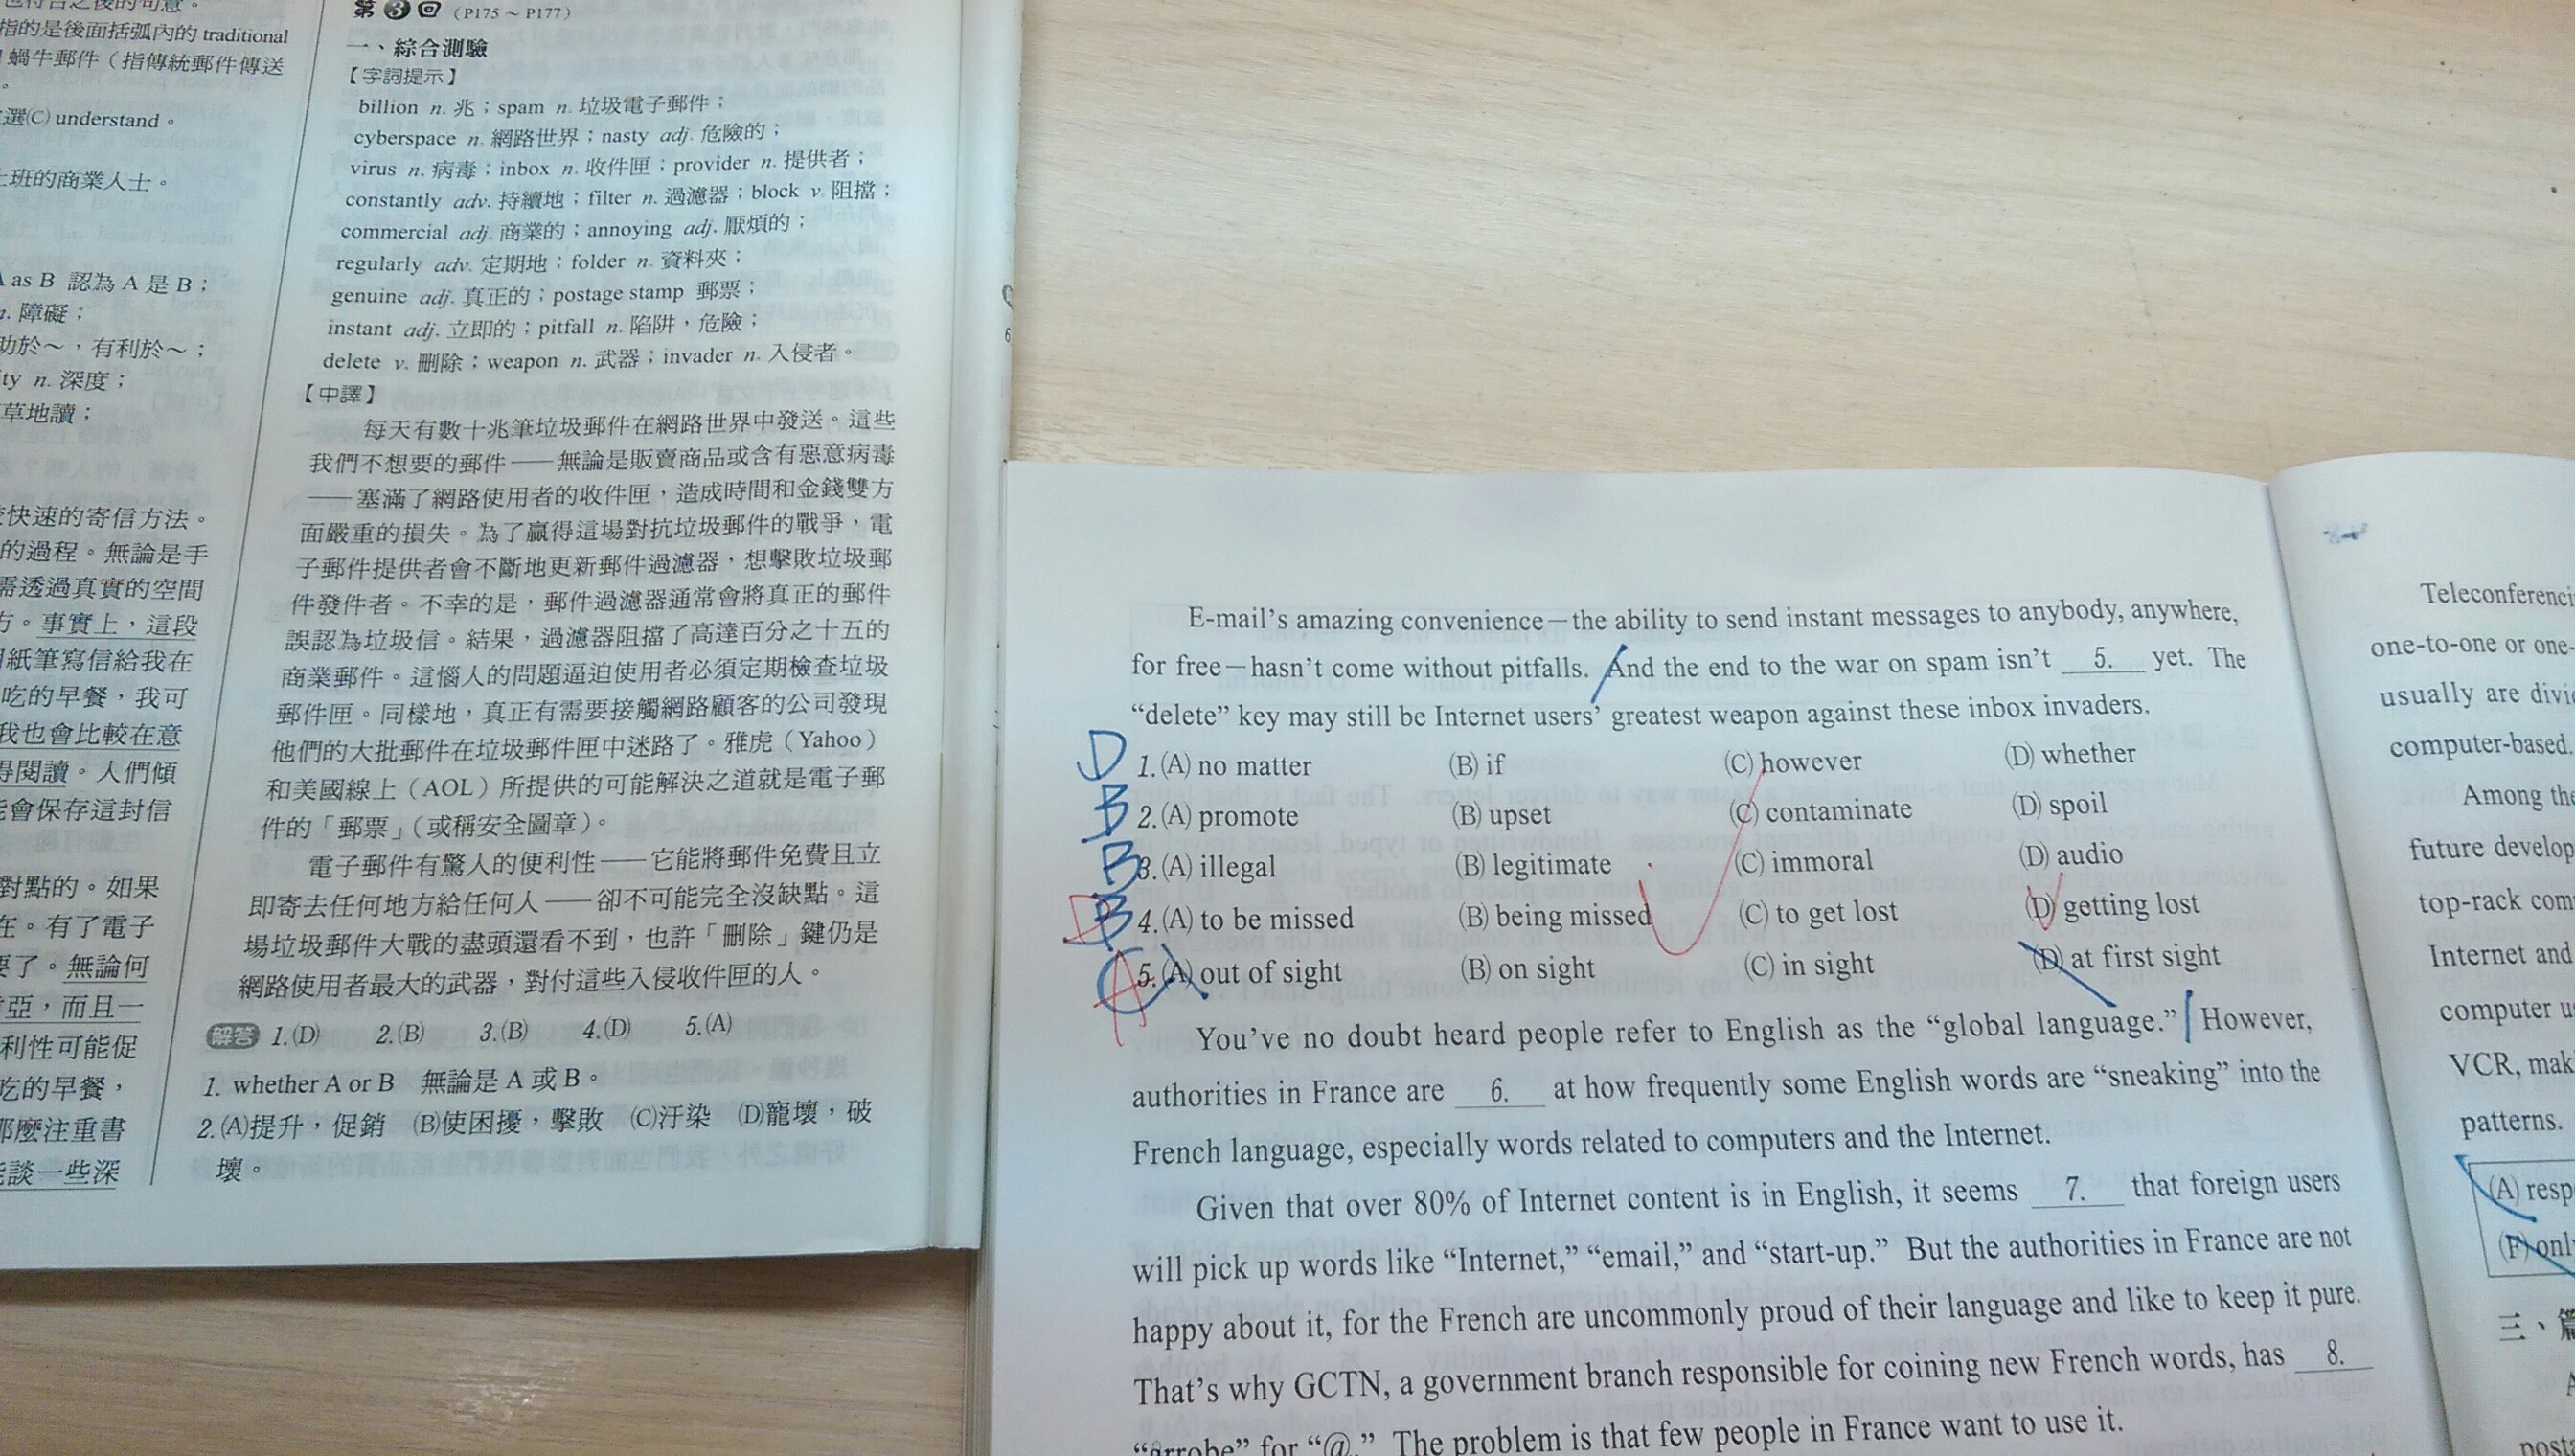 也符合之後的句意。
指的是後面括弧內的 traditional
蝸牛郵件（指傳統郵件傳送
。
選(C) understand。
上班的商業人士。
A as B 認為 A 是 B；
n. 障礙；
助於～，有利於～；
ity n. 深度；
草地讀；
快速的寄信方法。
的過程。無論是手
需透過真實的空間
方。事實上，這段
用紙筆寫信給我在
吃的早餐，我可
我也會比較在意
得閱讀。人們傾
能會保存這封信
對點的。如果
在。有了電子
要了。無論何
亞，而且一
利性可能促
吃的早餐，
那麼注重書
能談一些深
第3回（P175～P177）
一、綜合測驗
【字詞提示】
billion n. 兆；spam n. 垃圾電子郵件；
cyberspace n. 網路世界；nasty adj. 危險的；
virus n. 病毒；inbox n. 收件匣；provider n. 提供者；
constantly adv. 持續地；filter n. 過濾器；block v. 阻擋；
commercial adj. 商業的；annoying adj. 厭煩的；
regularly adv. 定期地；folder n. 資料夾；
genuine adj. 真正的；postage stamp 郵票；
instant adj. 立即的；pitfall n. 陷阱，危險；
delete v. 刪除；weapon n. 武器；invader n. 入侵者。
【中譯】
每天有數十兆筆垃圾郵件在網路世界中發送。這些
我們不想要的郵件——無論是販賣商品或含有惡意病毒
——塞滿了網路使用者的收件匣，造成時間和金錢雙方
面嚴重的損失。為了贏得這場對抗垃圾郵件的戰爭，電
子郵件提供者會不斷地更新郵件過濾器，想擊敗垃圾郵
件發件者。不幸的是，郵件過濾器通常會將真正的郵件
誤認為垃圾信。結果，過濾器阻擋了高達百分之十五的
商業郵件。這惱人的問題逼迫使用者必須定期檢查垃圾
郵件匣。同樣地，真正有需要接觸網路顧客的公司發現
他們的大批郵件在垃圾郵件匣中迷路了。雅虎（Yahoo）
和美國線上（AOL）所提供的可能解決之道就是電子郵
件的「郵票」（或稱安全圖章）。
電子郵件有驚人的便利性——它能將郵件免費且立
即寄去任何地方給任何人——卻不可能完全沒缺點。這
場垃圾郵件大戰的盡頭還看不到，也許「刪除」鍵仍是
網路使用者最大的武器，對付這些入侵收件匣的人。
解答 1.(D) 2.(B) 3.(B) 4.(D) 5.(A)
1. whether A or B 無論是 A 或 B。
2.(A)提升，促銷 (B)使困擾，擊敗 (C)汙染 (D)寵壞，破
壞。
6
E-mail's amazing convenience—the ability to send instant messages to anybody, anywhere,
for free—hasn't come without pitfalls. And the end to the war on spam isn't 5. yet. The
“delete” key may still be Internet users' greatest weapon against these inbox invaders.
D 1.(A) no matter (B) if (C) however (D) whether
B 2.(A) promote (B) upset (C) contaminate (D) spoil
B 3.(A) illegal (B) legitimate (C) immoral (D) audio
D B 4.(A) to be missed (B) being missed (C) to get lost (D) getting lost
A 5.(A) out of sight (B) on sight (C) in sight (D) at first sight
You've no doubt heard people refer to English as the “global language.” However,
authorities in France are 6. at how frequently some English words are “sneaking” into the
French language, especially words related to computers and the Internet.
Given that over 80% of Internet content is in English, it seems 7. that foreign users
will pick up words like “Internet,” “email,” and “start-up.” But the authorities in France are not
happy about it, for the French are uncommonly proud of their language and like to keep it pure.
That's why GCTN, a government branch responsible for coining new French words, has 8.
“arrobe” for “@.” The problem is that few people in France want to use it.
Teleconferenci
one-to-one or one-
usually are divid
computer-based.
Among the
future develop
top-rack com
Internet and
computer us
VCR, mak
patterns.
(A) resp
(F) only
三、篇